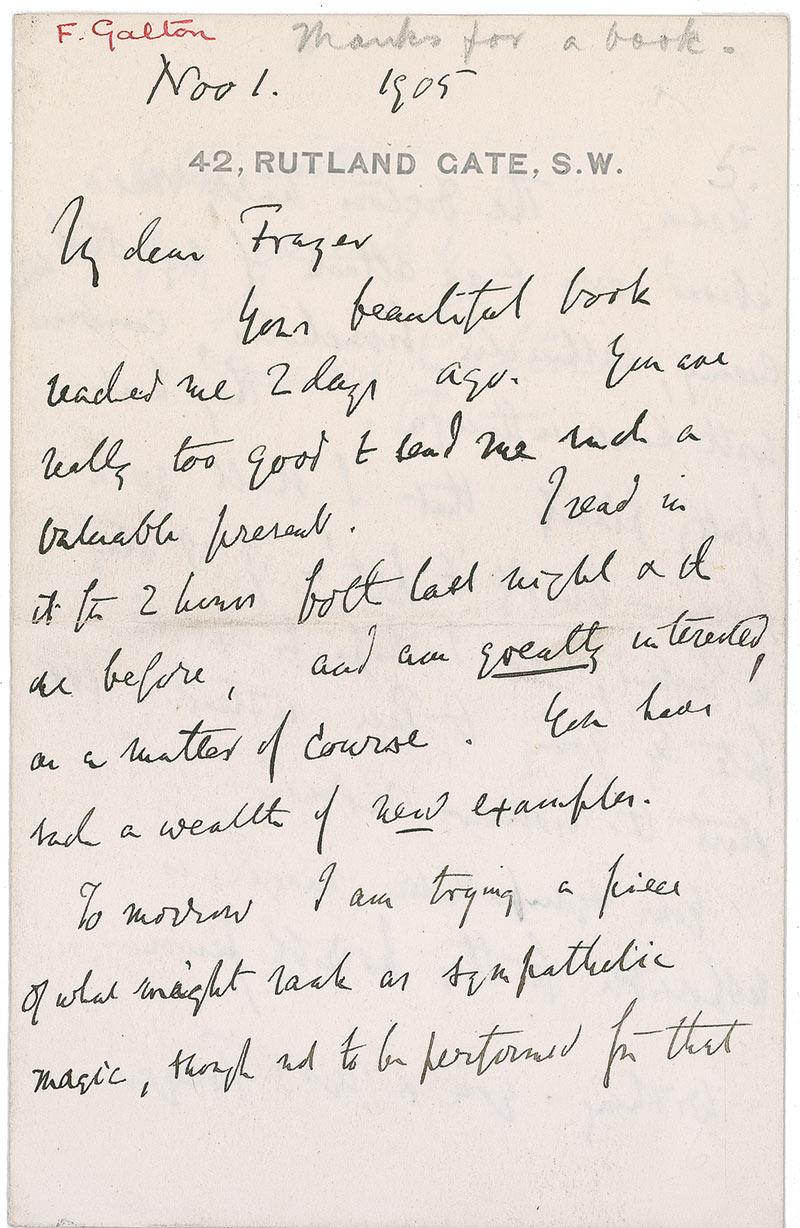 F. Galton
Thanks for a book.
Nov 1. 1905
42, RUTLAND GATE, S.W.
My dear Frazer
Your beautiful book
reached me 2 days ago. You are
really too good to send me such a
valuable present. I read in
it for 2 hours both last night & the
one before, and am greatly interested,
as a matter of course. You have
such a wealth of new examples.
To morrow I am trying a piece
of what might rank as sympathetic
magic, though not to be performed for that